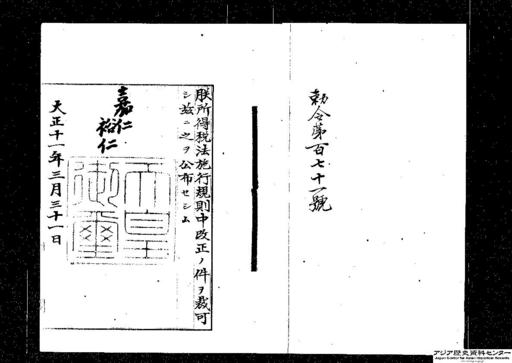 勅令第百七十一號
朕所得税法施行規則中改正ノ件ヲ裁可
シ茲ニ之ヲ公布セシム
嘉仁
裕仁
天皇
御璽
大正十一年三月三十一日
アジア歴史資料センター
Japan Center for Asian Historical Records